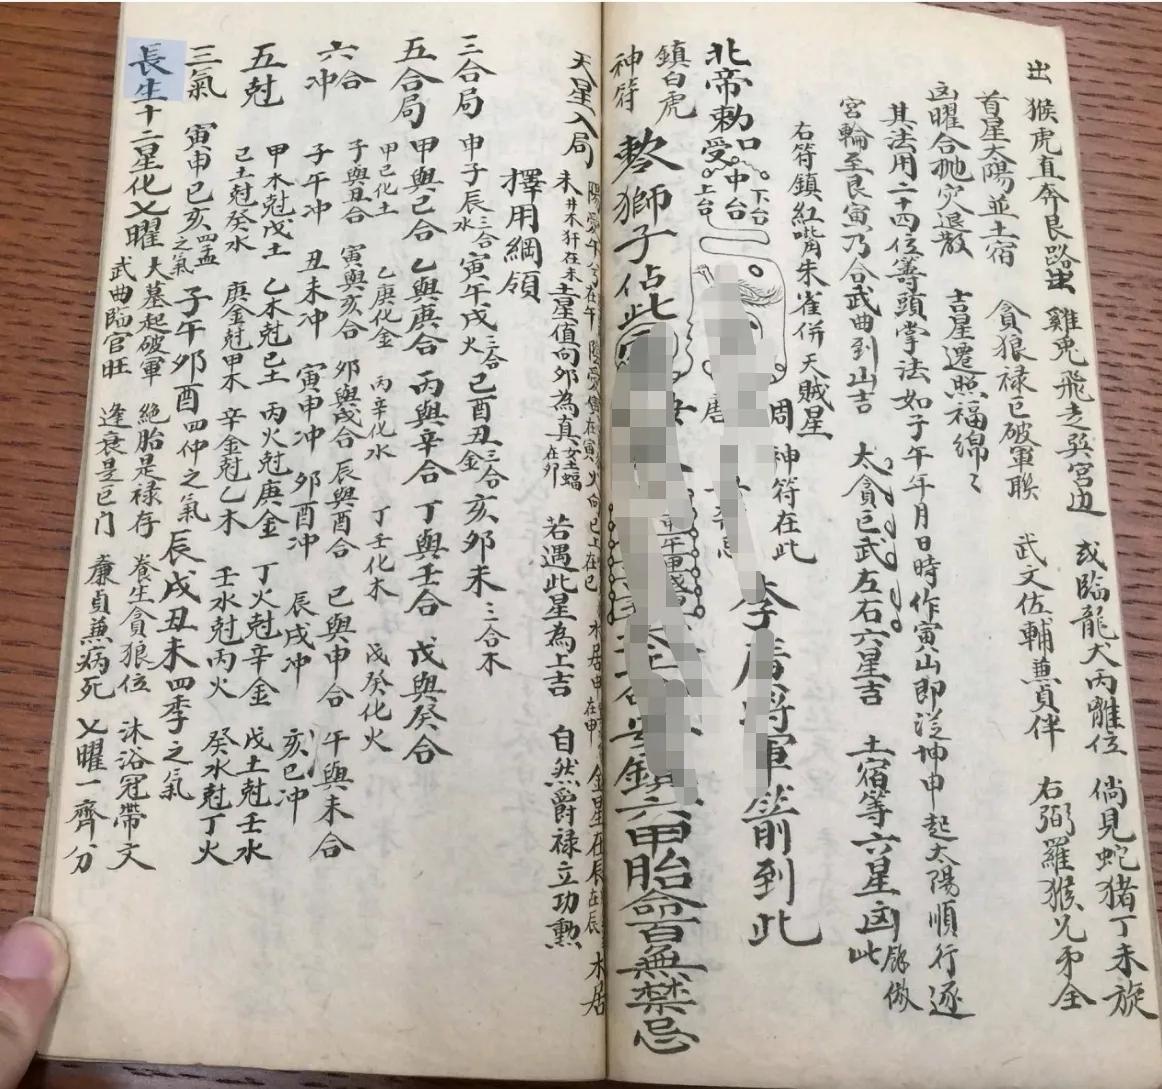 出 猴虎直奔艮路出 雞兎飛走巽宮边 或臨龍犬丙離位 倘見蛇猪丁未旋
首星太陽並土宿 貪狼禄巳破軍聯 武文佐輔兼貞伴 右弼羅猴兄弟全
凶曜合地穴退散 吉星還照福綿〻
其法用二十四位籌頭掌法如子午年月日時作寅山即從坤申起太陽順行逐
宮輪至艮寅乃合武曲到山吉 太貪巨武左右六星吉 土宿等六星凶 餘倣此
右符鎮紅嘴朱雀併天賊星
北帝勅口受 上台 中台 下台
周 神符在此
唐
李廣將軍箭到此
鎮白虎神符
獅子佔此
安鎮六甲胎命百無禁忌
天星入局
在午 在寅 在巳 水居申在申 金星在辰在辰 木居
未 井木犴在未 土星值向卯為真 女土蝠在卯 若遇此星為上吉 自然爵禄立功勲
擇用綱領
三合局 申子辰三合水 寅午戌三合火 巳酉丑三合金 亥卯未三合木
五合局 甲與己合 乙與庚合 丙與辛合 丁與壬合 戊與癸合
甲己化土 乙庚化金 丙辛化水 丁壬化木 戊癸化火
六合 子與丑合 寅與亥合 卯與戌合 辰與酉合 巳與申合 午與未合
六冲 子午冲 丑未冲 寅申冲 卯酉冲 辰戌冲 亥巳冲
五尅 甲木尅戊土 乙木尅己土 丙火尅庚金 丁火尅辛金 戊土尅壬水
己土尅癸水 庚金尅甲木 辛金尅乙木 壬水尅丙火 癸水尅丁火
三氣 寅申巳亥四孟之氣 子午卯酉四仲之氣 辰戌丑未四季之氣
長生十二星化乂曜 大墓起破軍 絶胎是禄存 养生貪狼位 沐浴冠帶文
武曲臨官旺 逢衰是巨门 廉貞兼病死 乂曜一齊分